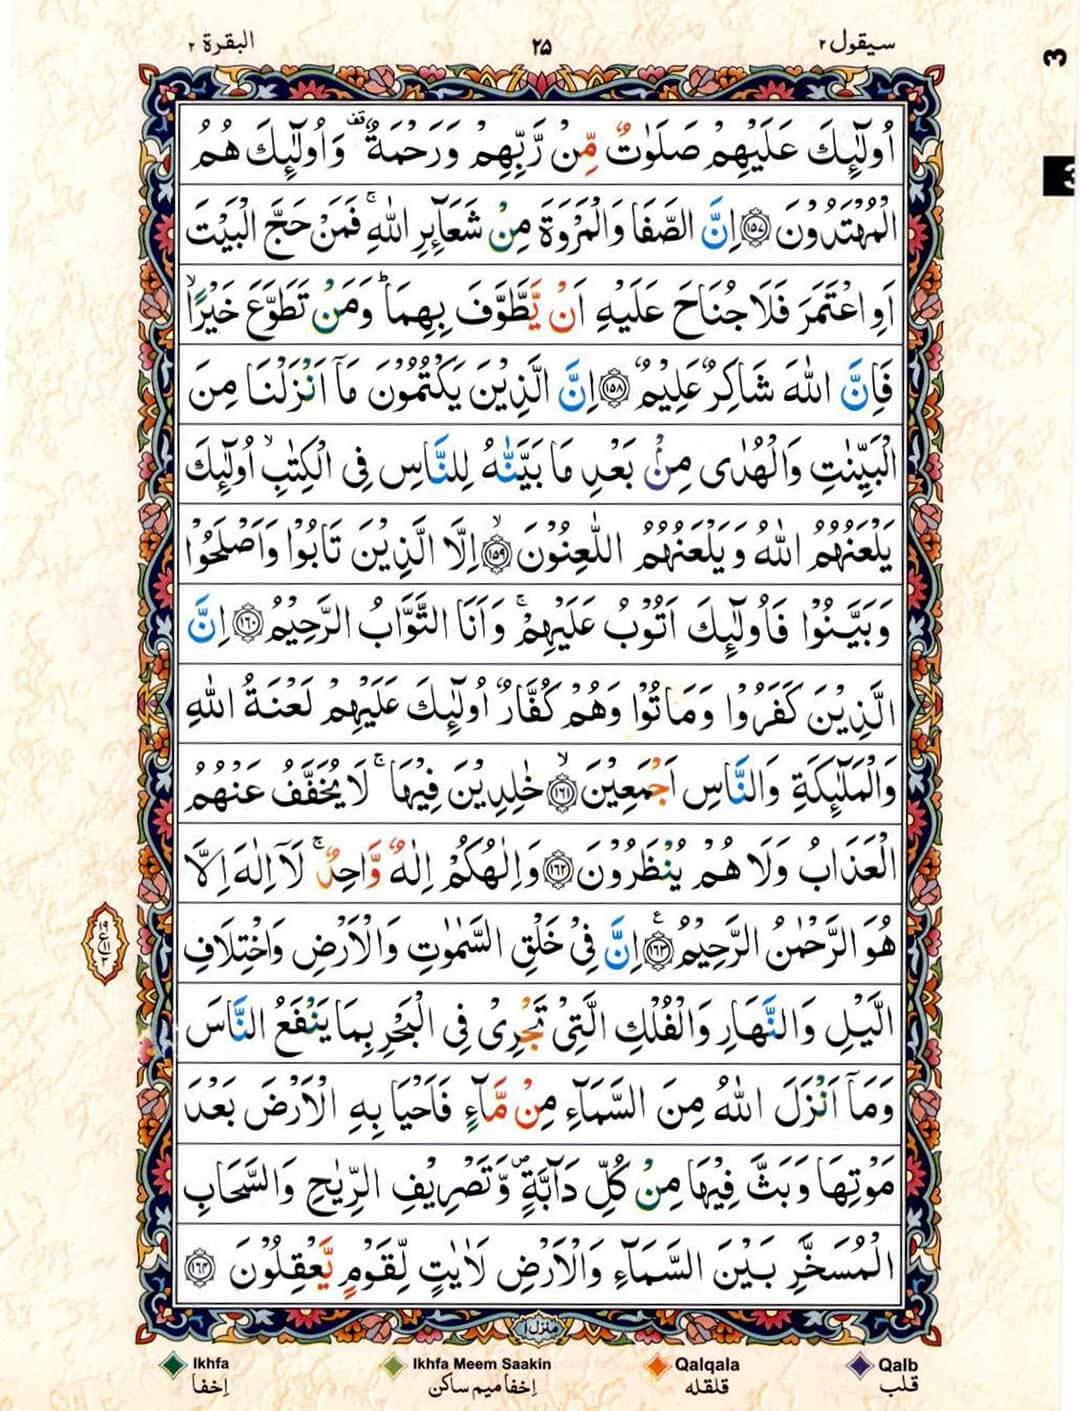 سيقول ٢
٢٥
البقرة ٢
3
3
اُولٰٓئِكَ عَلَيْهِمْ صَلَوٰتٌ مِّنْ رَّبِّهِمْ وَرَحْمَةٌ ۫ وَاُولٰٓئِكَ هُمُ
الْمُهْتَدُوْنَ ﴿١٥٧﴾ اِنَّ الصَّفَا وَالْمَرْوَةَ مِنْ شَعَآئِرِ اللّٰهِ ۚ فَمَنْ حَجَّ الْبَيْتَ
اَوِ اعْتَمَرَ فَلَا جُنَاحَ عَلَيْهِ اَنْ يَّطَّوَّفَ بِهِمَا ؕ وَمَنْ تَطَوَّعَ خَيْرًا ۙ
فَاِنَّ اللّٰهَ شَاكِرٌ عَلِيْمٌ ﴿١٥٨﴾ اِنَّ الَّذِيْنَ يَكْتُمُوْنَ مَآ اَنْزَلْنَا مِنَ
الْبَيِّنٰتِ وَالْهُدٰى مِنْۢ بَعْدِ مَا بَيَّنّٰهُ لِلنَّاسِ فِى الْكِتٰبِ ۙ اُولٰٓئِكَ
يَلْعَنُهُمُ اللّٰهُ وَيَلْعَنُهُمُ اللّٰعِنُوْنَ ۙ﴿١٥٩﴾ اِلَّا الَّذِيْنَ تَابُوْا وَاَصْلَحُوْا
وَبَيَّنُوْا فَاُولٰٓئِكَ اَتُوْبُ عَلَيْهِمْ ۚ وَاَنَا التَّوَّابُ الرَّحِيْمُ ﴿١٦٠﴾ اِنَّ
الَّذِيْنَ كَفَرُوْا وَمَاتُوْا وَهُمْ كُفَّارٌ اُولٰٓئِكَ عَلَيْهِمْ لَعْنَةُ اللّٰهِ
وَالْمَلٰٓئِكَةِ وَالنَّاسِ اَجْمَعِيْنَ ۙ﴿١٦١﴾ خٰلِدِيْنَ فِيْهَا ۚ لَا يُخَفَّفُ عَنْهُمُ
الْعَذَابُ وَلَا هُمْ يُنْظَرُوْنَ ﴿١٦٢﴾ وَاِلٰهُكُمْ اِلٰهٌ وَّاحِدٌ ۚ لَآ اِلٰهَ اِلَّا
هُوَ الرَّحْمٰنُ الرَّحِيْمُ ﴿١٦٣﴾ اِنَّ فِىْ خَلْقِ السَّمٰوٰتِ وَالْاَرْضِ وَاخْتِلَافِ
الَّيْلِ وَالنَّهَارِ وَالْفُلْكِ الَّتِىْ تَجْرِىْ فِى الْبَحْرِ بِمَا يَنْفَعُ النَّاسَ
وَمَآ اَنْزَلَ اللّٰهُ مِنَ السَّمَآءِ مِنْ مَّآءٍ فَاَحْيَا بِهِ الْاَرْضَ بَعْدَ
مَوْتِهَا وَبَثَّ فِيْهَا مِنْ كُلِّ دَآبَّةٍ ۪ وَّتَصْرِيْفِ الرِّيٰحِ وَالسَّحَابِ
الْمُسَخَّرِ بَيْنَ السَّمَآءِ وَالْاَرْضِ لَاٰيٰتٍ لِّقَوْمٍ يَّعْقِلُوْنَ ﴿١٦٤﴾
منزل ١
Ikhfa Ikhfa Meem Saakin Qalqala Qalb
اِخفا اِخفا ميم ساكن قلقله قلب